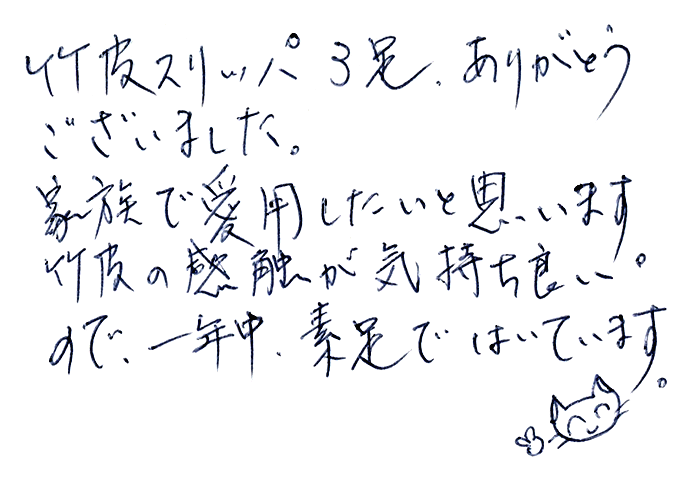 竹皮スリッパ3足、ありがとう
ございました。
家族で愛用したいと思います。
竹皮の感触が気持ち良い
ので、一年中、素足ではいています。